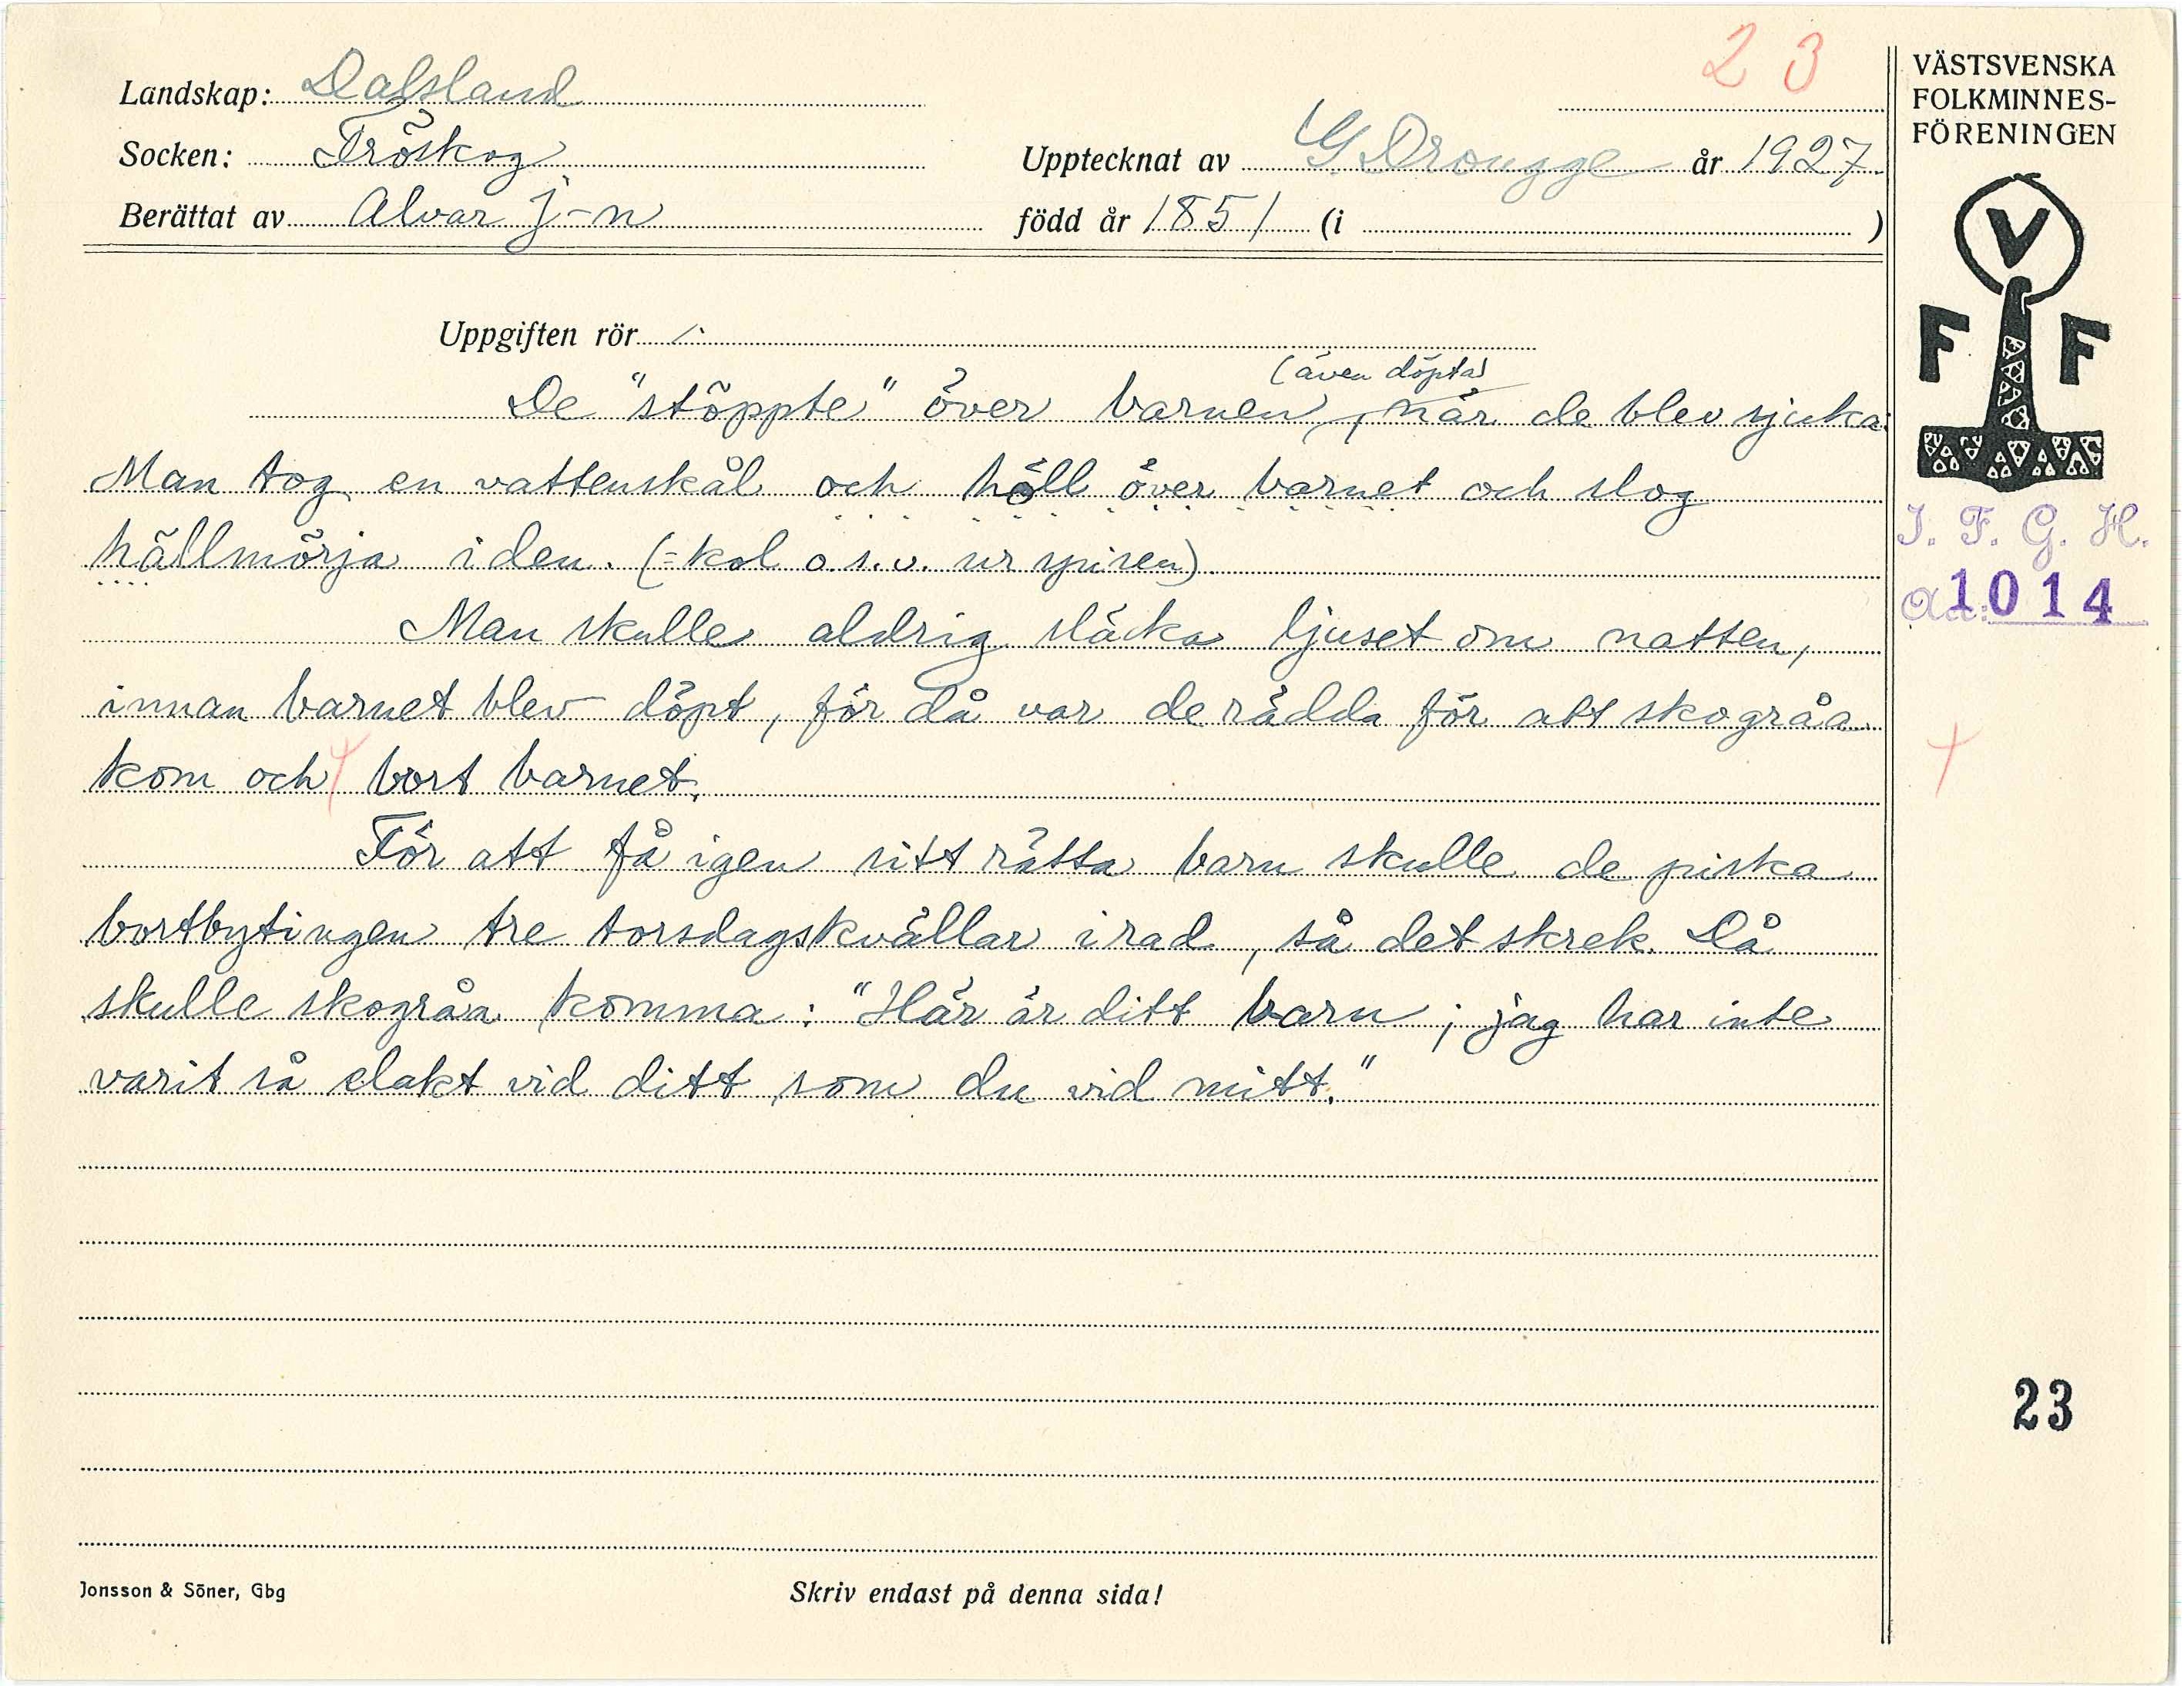 23
Landskap: Dalsland
Socken: Fröskog
Upptecknat av G Drougge år 1927.
Berättat av Alvar J-n
född år 1851 (i )
VÄSTSVENSKA
FOLKMINNES-
FÖRENINGEN
V
F F
I. F. G. H.
1014
Uppgiften rör
(även döpta)
De "stöppte" över barnen, när de blev sjuka:
Man tog en vattenskål och höll över barnet och slog
hällmörja i den. (=kol o.s.v. ur spisen)
Man skulle aldrig släcka ljuset om natten,
innan barnet blev döpt, för då var de rädda för att skogråa
kom och bort barnet.
För att få igen sitt rätta barn skulle de piska
bortbytingen tre torsdagskvällar i rad, så det skrek. Då
skulle skogråa komma: "Här är ditt barn; jag har inte
varit så elakt vid ditt som du vid mitt."
23
Jonsson & Söner, Gbg
Skriv endast på denna sida!